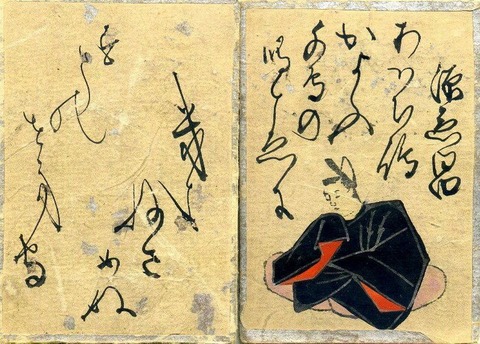 源兼昌
あはち嶋
かよふ
千鳥の
鳴こゑに
幾よ
ねさめぬ
すまの
せき守